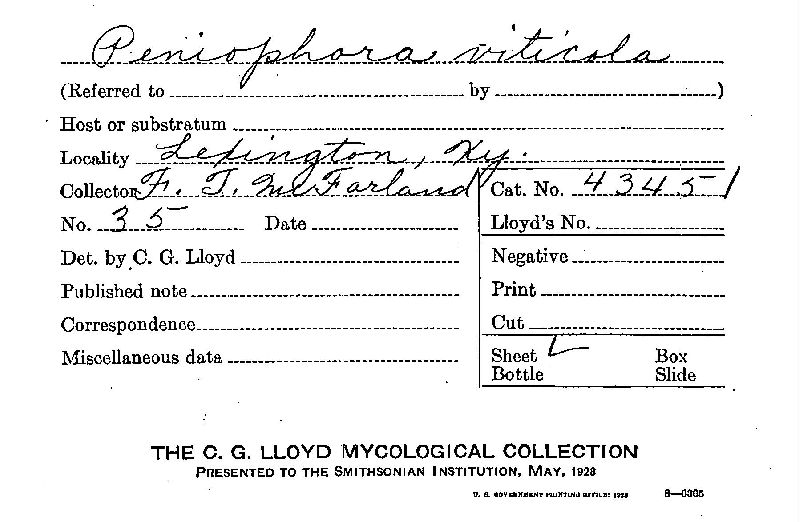 Peniophora viticola
(Referred to by )
Host or substratum
Locality Lexington, Ky.
Collector F. T. McFarland Cat. No. 43451
No. 35 Date Lloyd's No.
Det. by C. G. Lloyd Negative
Published note Print
Correspondence Cut
Miscellaneous data Sheet ✓ Box
Bottle Slide
THE C. G. LLOYD MYCOLOGICAL COLLECTION
PRESENTED TO THE SMITHSONIAN INSTITUTION, MAY, 1928
U. S. GOVERNMENT PRINTING OFFICE: 1928 8—6305